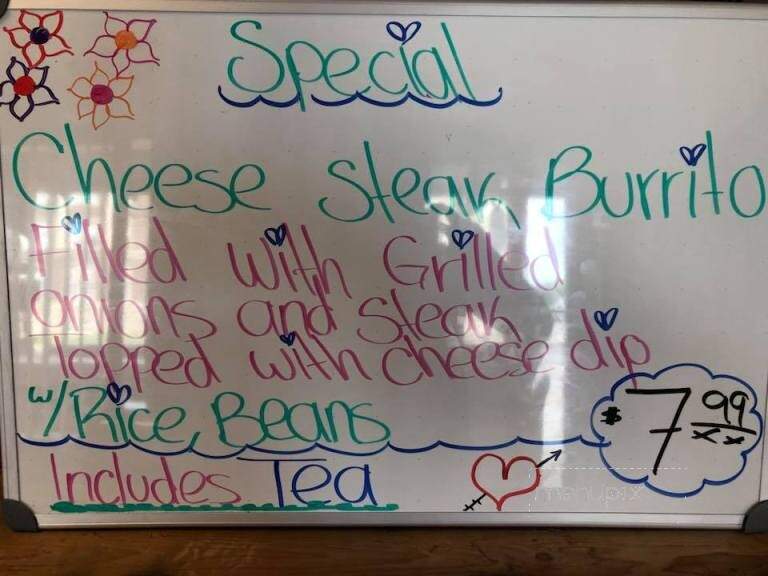 Special
Cheese Steak Burrito
Filled with Grilled
onions and steak
topped with cheese dip
w/Rice, Beans
$7 99/xx
Includes Tea
menupix